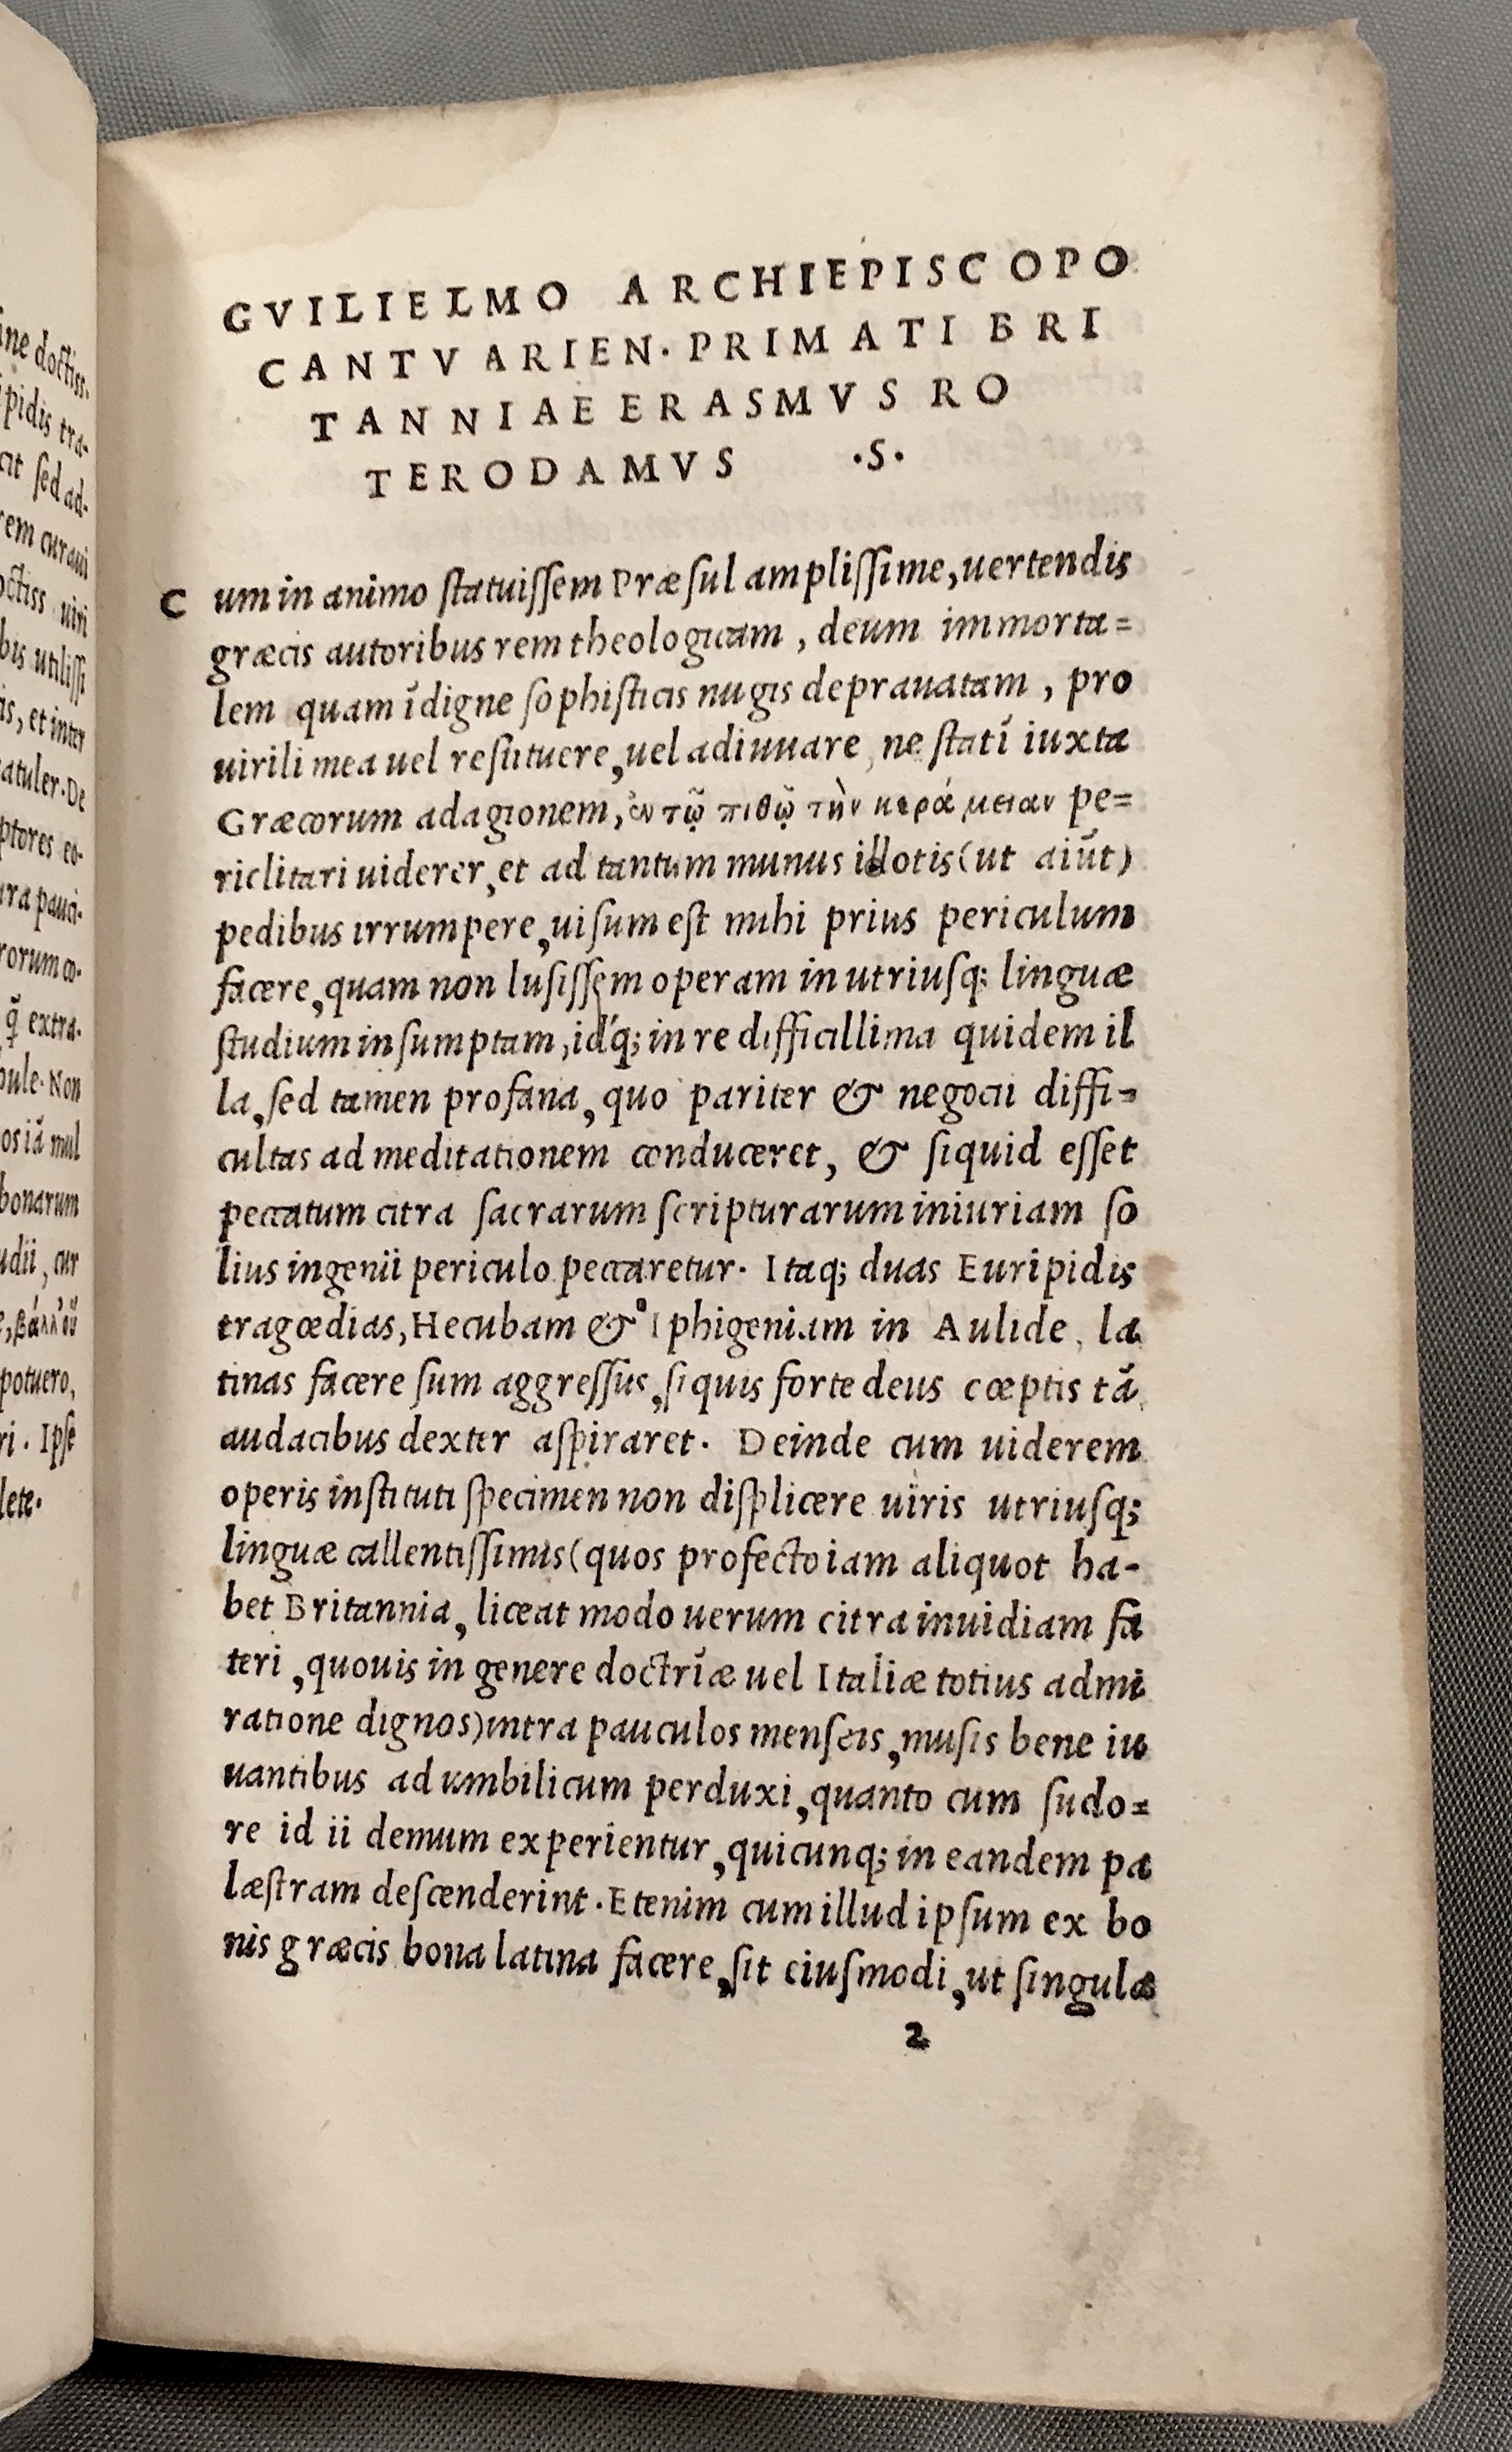 GVILIELMO ARCHIEPISCOPO
CANTVARIEN. PRIMATI BRI
TANNIAE ERASMVS RO
TERODAMVS .S.
Cum in animo statuissem Præsul amplissime, uertendis
græcis autoribus rem theologicam, deum immorta=
lem quam īdigne sophisticis nugis deprauatam, pro
uirili mea uel restituere, uel adiuuare, ne statī iuxta
Græcorum adagionem, ἐν τῷ πιθῷ τὴν κεράμειαν pe=
riclitari uiderer, et ad tantum munus illotis (ut aiūt)
pedibus irrumpere, uisum est mihi prius periculum
facere, quam non lusissem operam in utriusq; linguæ
studium insumptam, idq́; in re difficillima quidem il
la, sed tamen profana, quo pariter & negocii diffi=
cultas ad meditationem conduceret, & siquid esset
peccatum citra sacrarum scripturarum iniuriam so
lius ingenii periculo peccaretur. Itaq; duas Euripidis
tragœdias, Hecubam & Iphigeniam in Aulide, la
tinas facere sum aggressus, si quis forte deus cœptis tā
audacibus dexter aspiraret. Deinde cum uiderem
operis instituti specimen non displicere uiris utriusq;
linguæ callentissimis (quos profecto iam aliquot ha-
bet Britannia, liceat modo uerum citra inuidiam fa
teri, quouis in genere doctrīæ uel Italiæ totius admi
ratione dignos) intra pauculos menseis, musis bene iu
uantibus ad umbilicum perduxi, quanto cum sudo=
re id ii demum experientur, quicunq; in eandem pa
læstram descenderint. Etenim cum illud ipsum ex bo
nis græcis bona latina facere, sit eiusmodi, ut singulæ
2
doctiss.
ipidis tra-
sed ad-
rem curaui
octiss uiri
bis utilissi
is, et inter
atuler. De
ptores eo-
ra pauci-
rorum co-
q̃ extra-
pule. Non
os iā mul
bonarum
udii, cur
potuero,
ri. Ipse
lete.